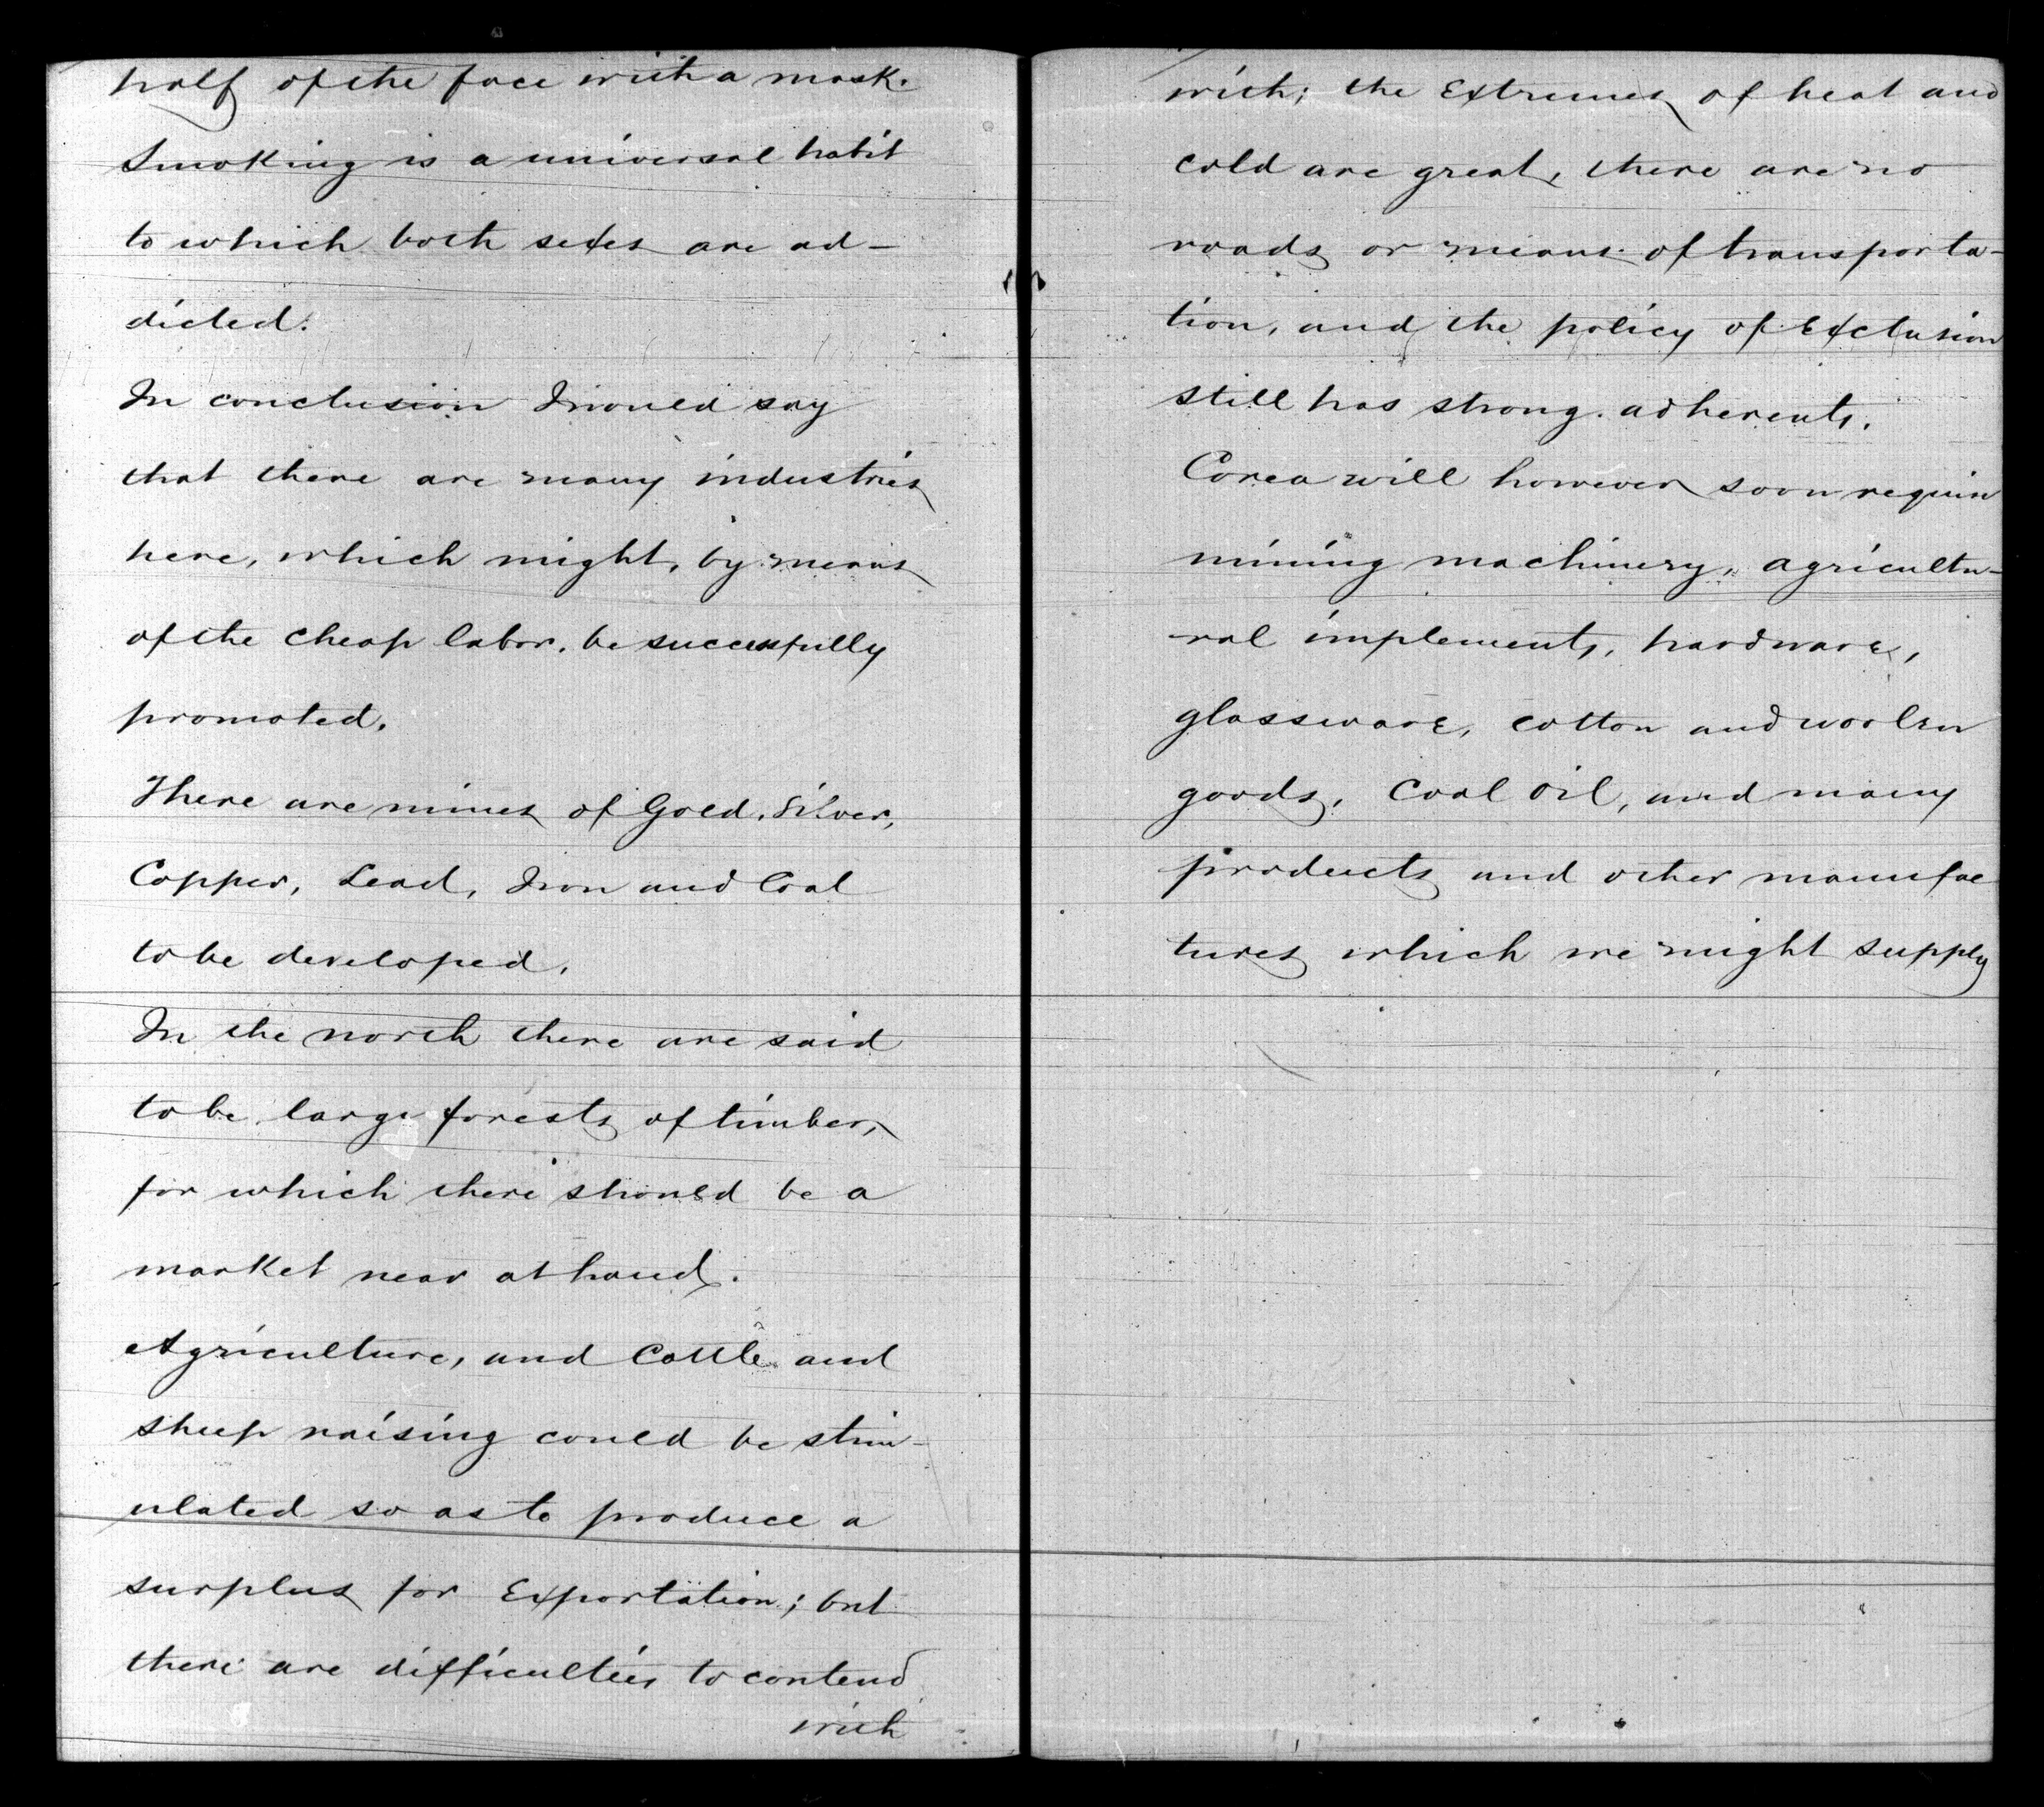 half of the face with a mask.
Smoking is a universal habit
to which both sexes are ad-
dicted.
In conclusion I would say
that there are many industries
here, which might, by means
of the cheap labor, be successfully
promoted.
There are mines of Gold, Silver,
Copper, Lead, Iron and Coal
to be developed.
In the north there are said
to be large forests of timber,
for which there should be a
market near at hand.
Agriculture, and Cattle and
sheep raising could be stim-
ulated so as to produce a
surplus for Exportation; but
there are difficulties to contend
with
with; the Extremes of heat and
cold are great, there are no
roads or means of transporta-
tion, and the policy of Exclusion
still has strong adherents.
Corea will however soon require
mining machinery, agricultu-
ral implements, hardware,
glassware, cotton and woolen
goods, Coal oil, and many
products and other manufac
tures which we might supply